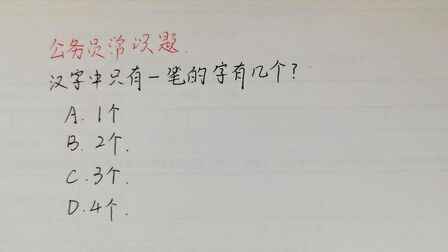 公务员常识题.
汉字中只有一笔的字有几个?
A. 1个
B. 2个.
C. 3个.
D. 4个.